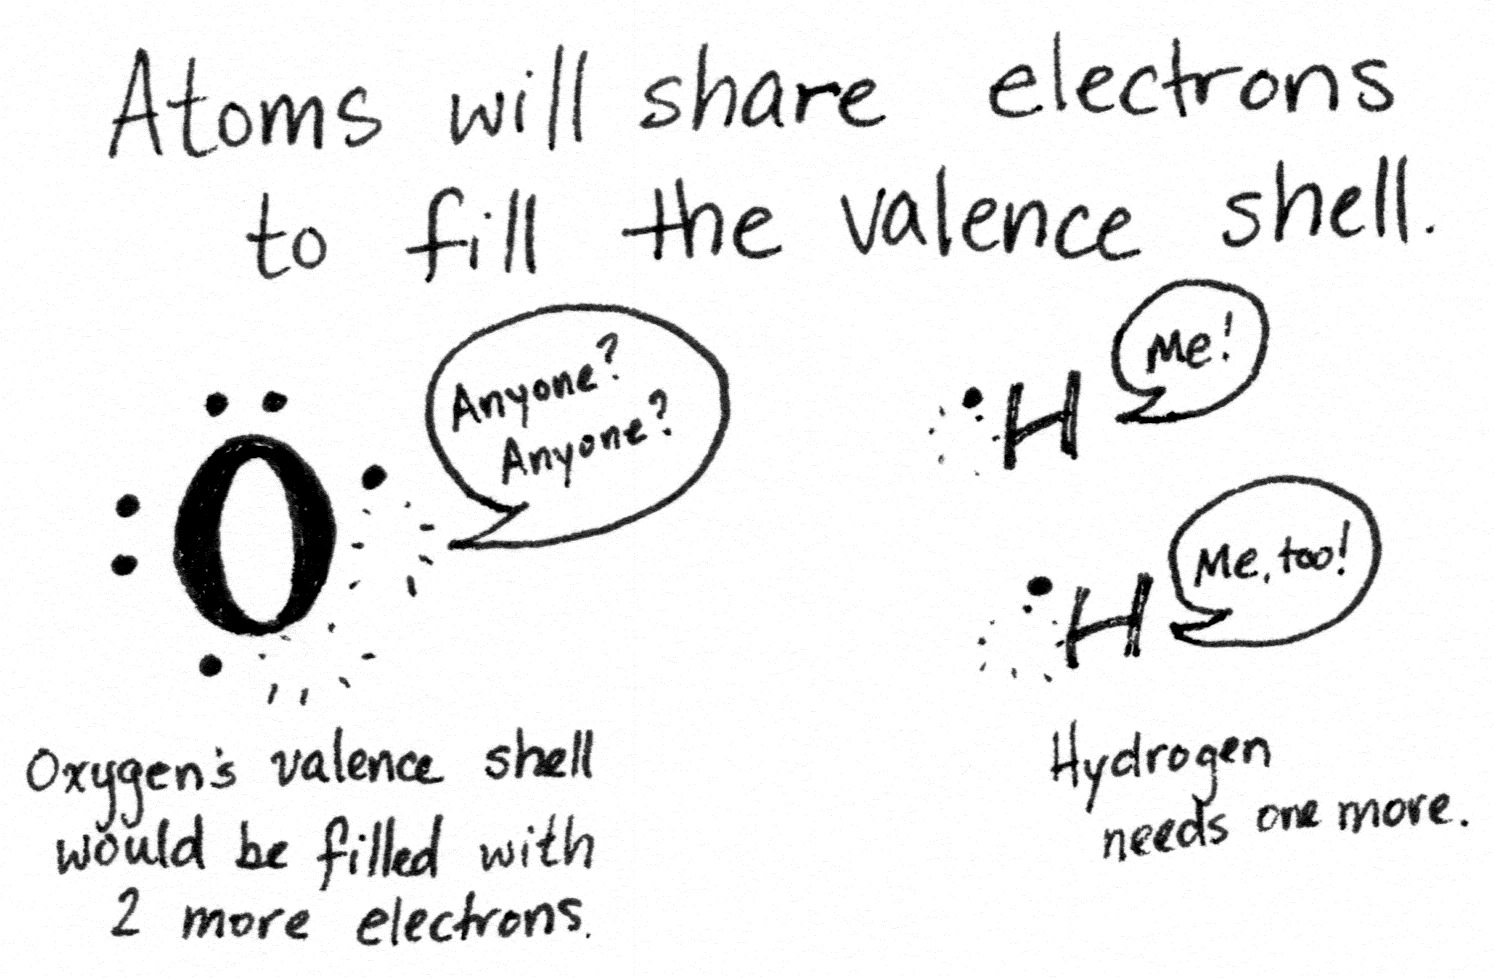 Atoms will share electrons
to fill the valence shell.
Anyone?
Anyone?
O
Me!
H
Me, too!
H
Oxygen's valence shell
would be filled with
2 more electrons.
Hydrogen
needs one more.